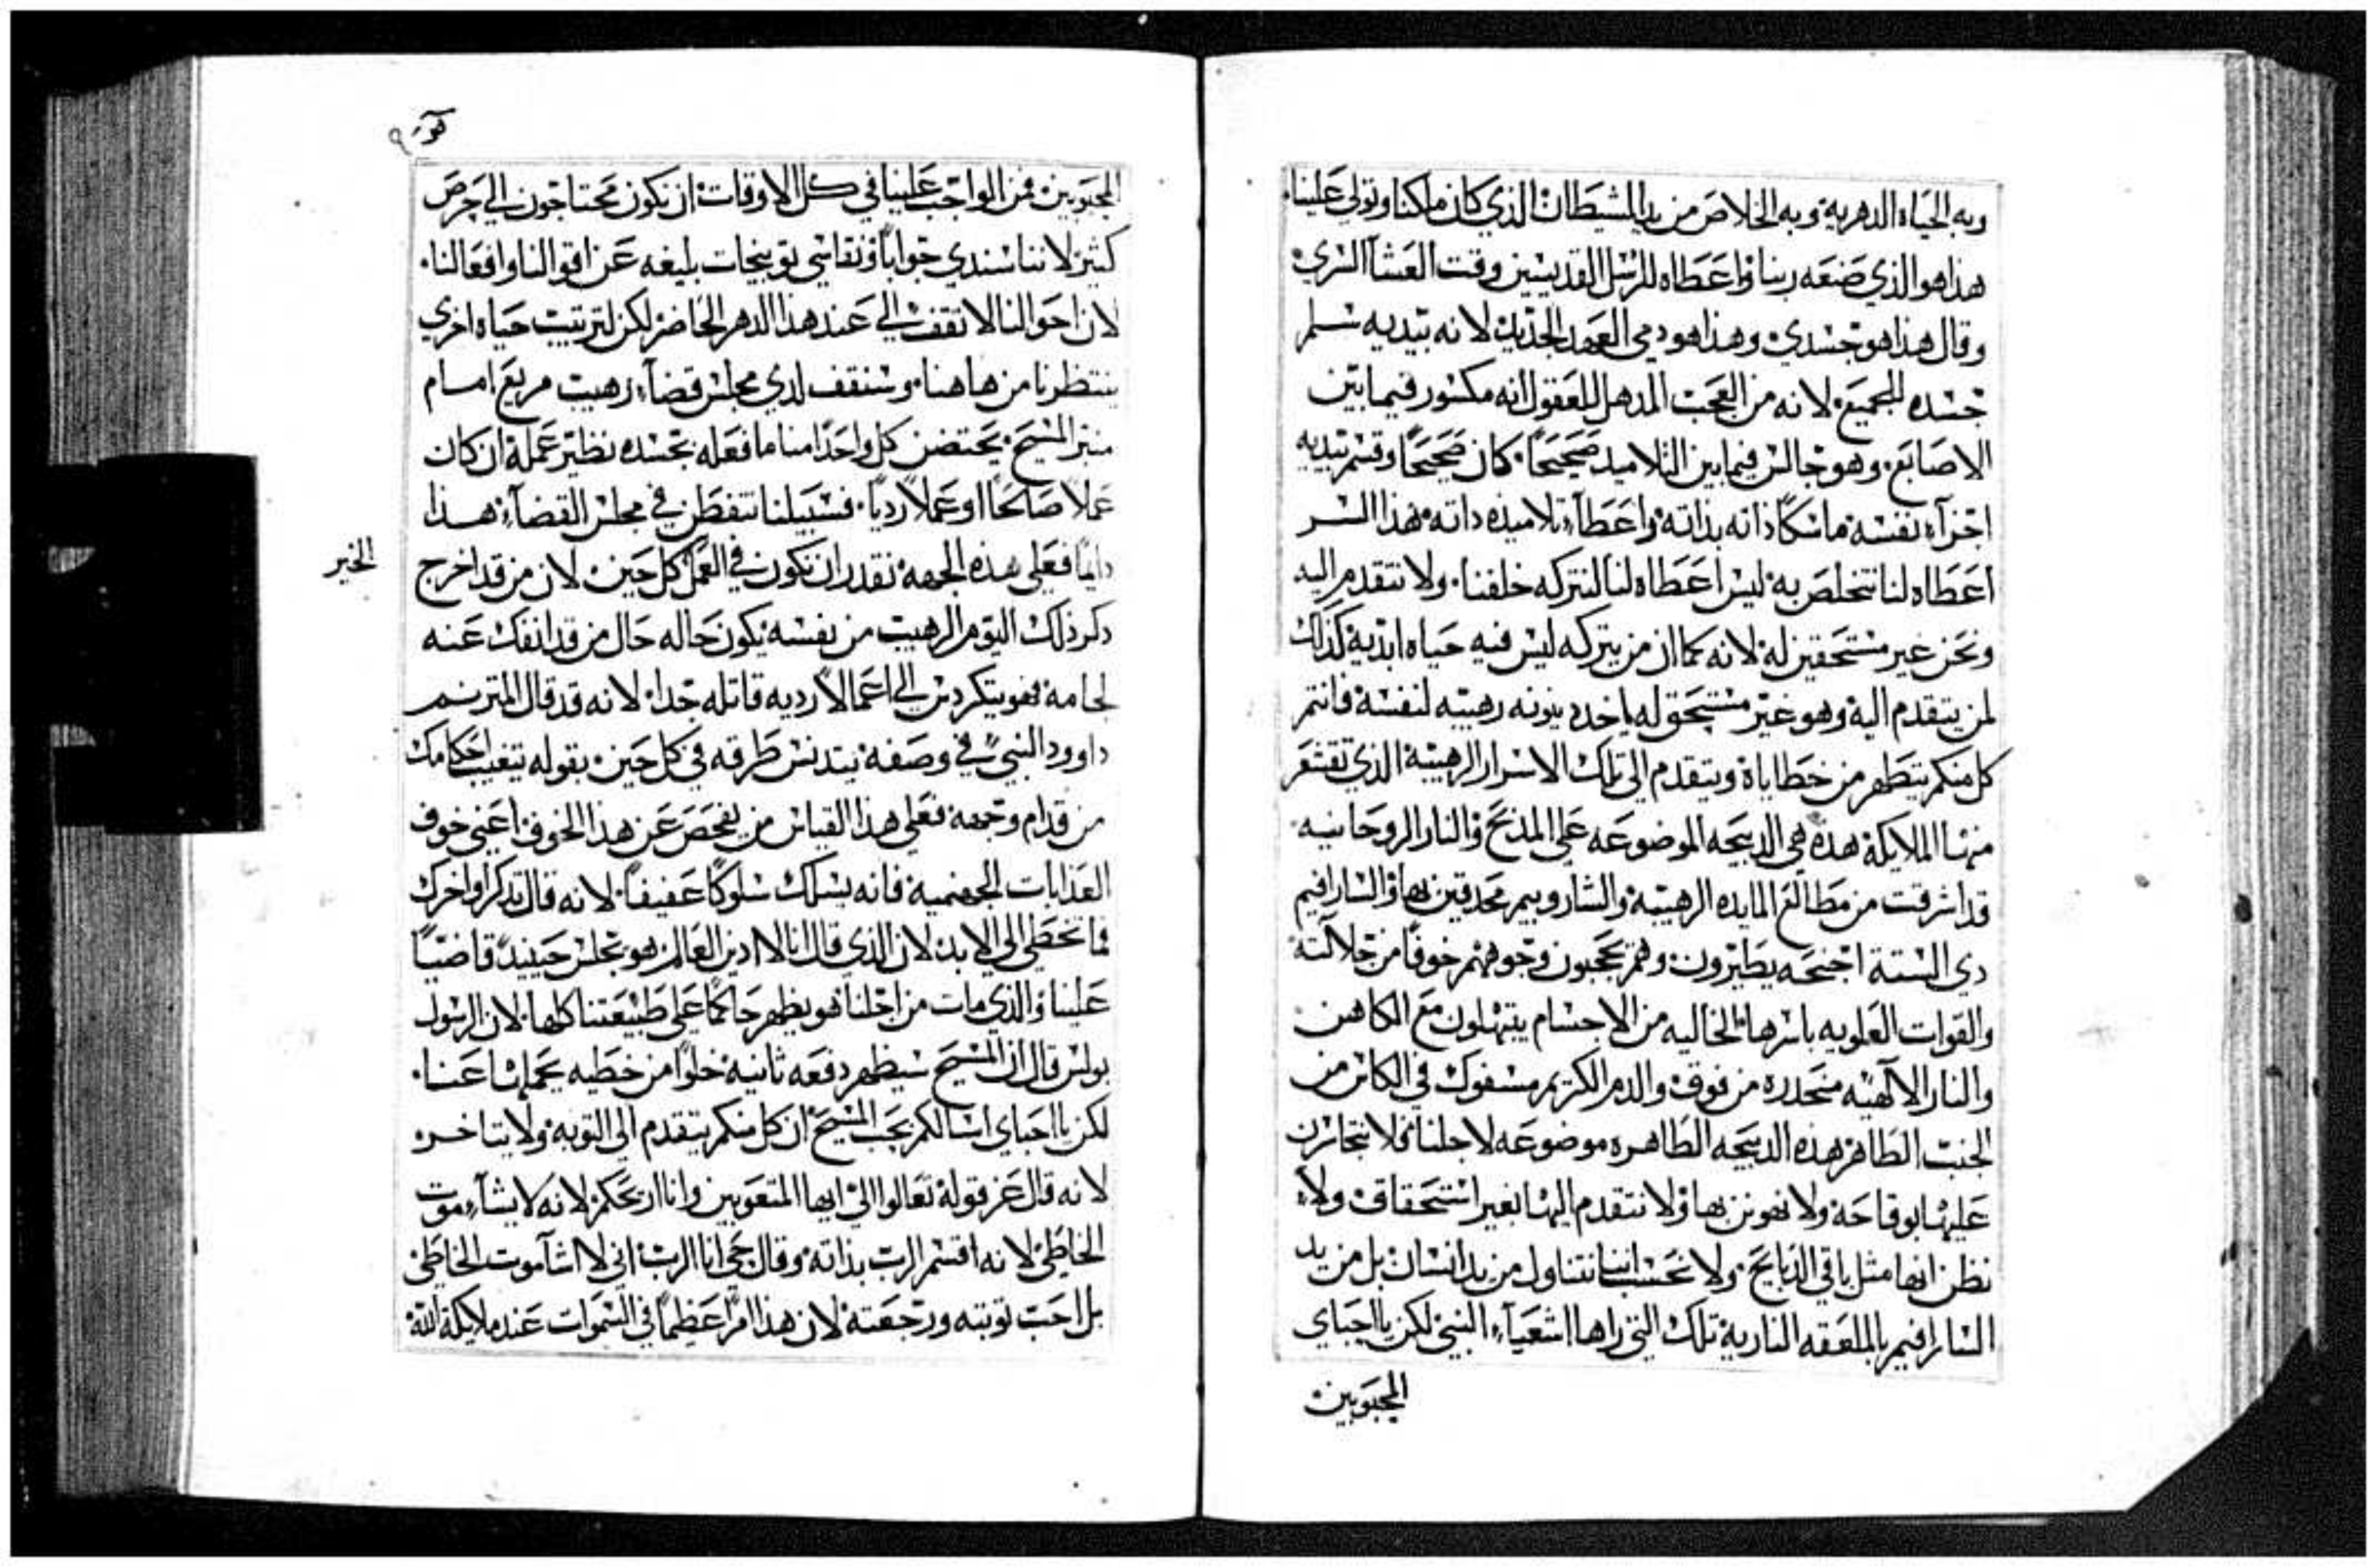 وبه الحياه الدهريه وبه الخلاص من يد الشيطان الذي كان مالكنا وتولي علينا.
هذا هو الذي صنعه ربنا واعطاه للرسل القديسين وقت العشا السري
وقال هذا هو جسدي وهذا هو دمي العهد الجديد لانه بيديه سلم
جسده للجميع لانه من العجب المدهل للعقول انه مكسور فيما بين
الاصابع وهو جالس فيما بين التلاميد صحيحاً كان صحيحاً وقسم بيديه
اجزاء نفسه ماسكاً داته بداته واعطاء تلاميده داته هذا السر
اعطاه لنا نتخلص به ليس اعطاه لنا لنتركه خلفنا ولا نتقدم اليه
ونحن غير مستحقين له لانه كما ان من يتركه ليس فيه حياه ابديه كذلك
لمن يتقدم اليه وهو غير مستحق له ياخد دينونه رهيبه لنفسه فانتم
كل منكم يتطهر من خطاياة ويتقدم الي تلك الاسرار الرهيبه الذي تقشعر
منها الملايكة هذه هي الدبيحه الموضوعه علي المدبح والنار الروحانيه
قد اشرقت من مطالع المايده الرهيبه والشاروبيم محدقين بها والسارافيم
دي الستة اجنحه يطيرون وهم يحجبون وجوههم خوفاً من جلالته
والقوات العلويه باسرها الخاليه من الاجسام يبتهلون مع الكاهن
والنار الالهيه منحدره من فوق والدم الكريم مسفوك في الكاس من
الجنب الطاهر هذه الدبيحه الطاهره موضوعه لاجلنا فلا نتجاسرن
عليها بوقاحه ولا نهونن بها ولا نتقدم اليها بغير استحقاق ولا
نظن انها مثل باقي الدبايح ولا نحسب اننا نتناول من يد انسان بل من يد
السارافيم بالملعقه الناريه تلك التي راها اشعياء النبي لكن يا احباي
المحبوبين
المحبوبين فمن الواجب علينا في كل الاوقات ان نكون محتاجون الي حرص
كثير لاننا سندي جواباً ونقاسي توبيخات بليغه عن اقوالنا وافعالنا.
لان احوالنا لا تقف الي عند هذا الدهر الحاضر لكن لترتيب حياه اخري
ينتظرنا من هاهنا وسنقف لدي مجلس قضاء رهيب مريع امام
منبر المسيح يحتضن كل واحداً منا ما فعله بجسده نظير عمله ان كان
عملاً صالحاً او عملاً ردياً فسبيلنا نتفطن في مجلس القضاء هذا
دايماً فعلي هذه الجهه نقدر ان نكون في العمل كل حين لان من قد اخرج
الخبر
دكر ذلك اليوم الرهيب من نفسه يكون حاله حال من قد انفك عنه
لجامه فهو يتكردس الي اعمالاً رديه قاتله جدا لانه قد قال المترنم
داوود النبي في وصفه بتدنس طرقه في كل حين بقوله تغيب احكامك
من قدام وجهه فعلي هذا القياس من يفحص عن هذا الخوف اعني خوف
العذابات الجهنميه فانه يسلك سلوكاً عفيفاً لانه قال تدكر اواخرك
فما تخطي الي الابد لان الذي قال انا لا ادين العالم هو يجلس حينيد قاضياً
علينا والذي مات من اجلنا هو يظهر حاكماً علي طبيعتنا كلها لان الرسول
بولس قال ان المسيح سيظهر دفعه ثانيه خلواً من خطيه يحملها عنا.
لكن يا احباي اسالكم بحب المسيح ان كل منكم يتقدم الي التوبه ولا يتاخر
لانه قال عز قوله تعالوا الي ايها المتعوبين وانا اريحكم لانه لا يشاء موت
الخاطي لانه اقسم الرب بذاته وقال حي انا الرب اني لا اشا موت الخاطي
بل احب توبته ورجعته لان هذا امراً عظيماً في السموات عند ملايكة الله